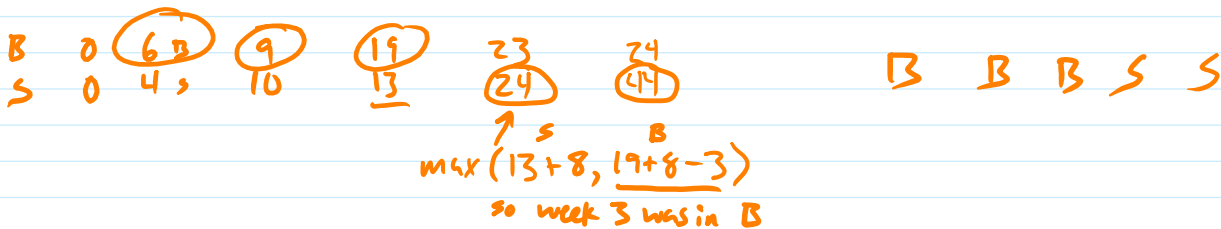 B 0 6 B 9 19 23 24 B B B S S
S 0 4 S 10 13 24 44
S B
max(13+8, 19+8-3)
so week 3 was in B